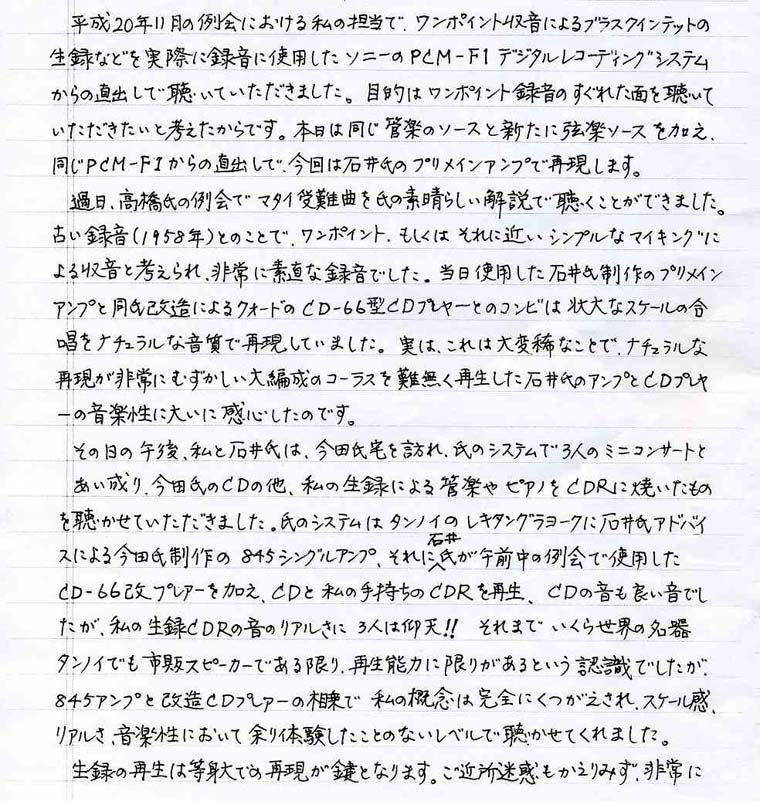 平成20年11月の例会における私の担当で、ワンポイント収音によるブラスクインテットの
生録などを実際に録音に使用したソニーのPCM-F1デジタルレコーディングシステム
からの直出しで聴いていただきました。目的はワンポイント録音のすぐれた面を聴いて
いただきたいと考えたからです。本日は同じ管楽のソースと新たに弦楽ソースを加え、
同じPCM-F1からの直出しで、今回は石井氏のプリメインアンプで再現します。
過日、高橋氏の例会でマタイ受難曲を氏の素晴らしい解説で聴くことができました。
古い録音(1958年)とのことで、ワンポイント、もしくはそれに近いシンプルなマイキングに
よる収音と考えられ、非常に素直な録音でした。当日使用した石井氏制作のプリメイン
アンプと同氏改造によるクォードのCD-66型CDプレヤーとのコンビは壮大なスケールの合
唱をナチュラルな音質で再現していました。実は、これは大変稀なことで、ナチュラルな
再現が非常にむずかしい大編成のコーラスを難無く再生した石井氏のアンプとCDプレヤ
ーの音楽性に大いに感心したのです。
その日の午後、私と石井氏は、今田氏宅を訪れ、氏のシステムで3人のミニコンサートと
あい成り、今田氏のCDの他、私の生録による管楽やピアノをCDRに焼いたもの
を聴かせていただきました。氏のシステムはタンノイのレキタングラヨークに石井氏アドバイ
スによる今田氏制作の845シングルアンプ、それに石井氏が午前中の例会で使用した
CD-66改プレアーを加え、CDと私の手持ちのCDRを再生、CDの音も良い音でし
たが、私の生録CDRの音のリアルさに3人は仰天!! それまでいくら世界の名器
タンノイでも市販スピーカーである限り、再生能力に限りがあるという認識でしたが、
845アンプと改造CDプレアーの相乗で私の概念は完全にくつがえされ、スケール感、
リアルさ、音楽性において余り体験したことのないレベルで聴かせてくれました。
生録の再生は等身大での再現が鍵となります。ご近所迷惑もかえりみず、非常に